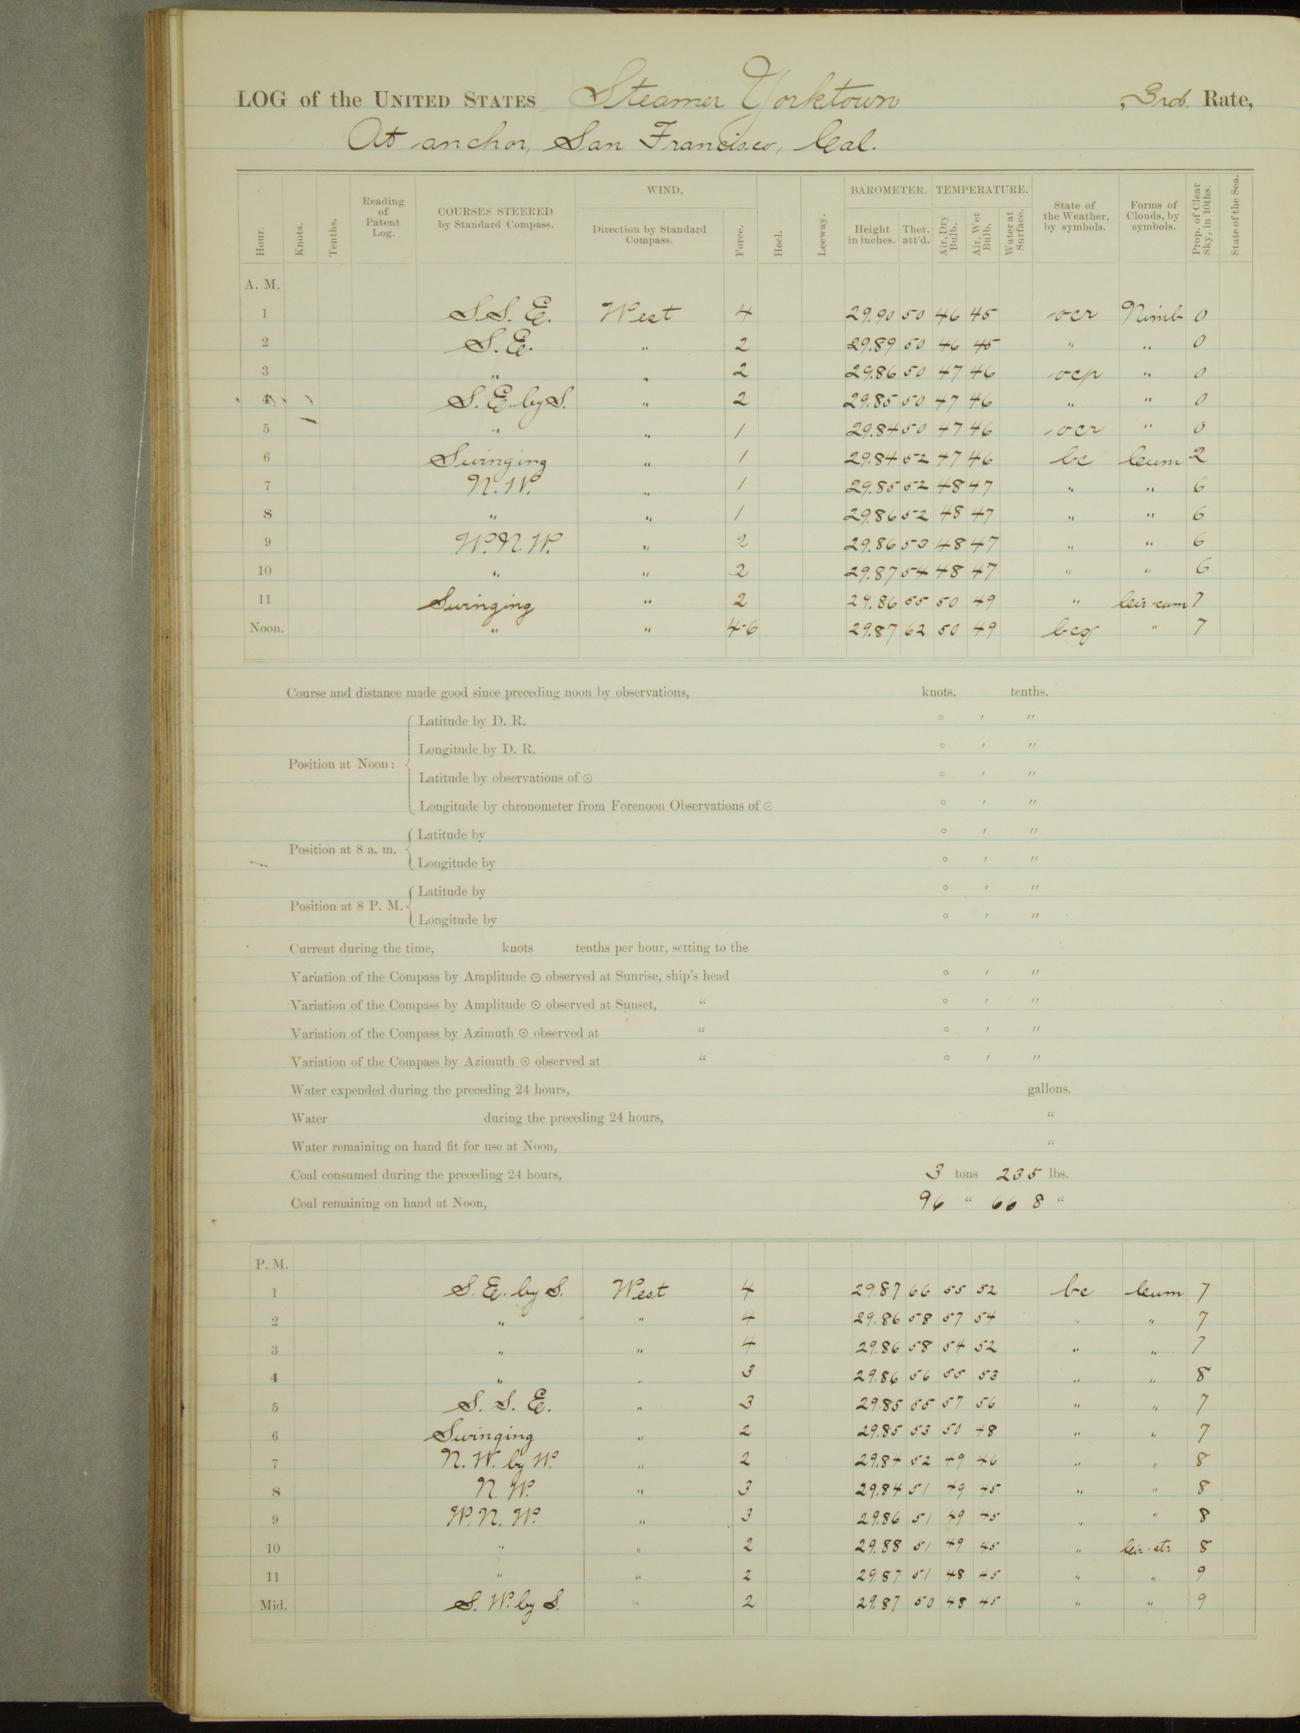 LOG of the UNITED STATES Steamer Yorktown, 3rd. Rate,
At anchor, San Francisco, Cal.
Hour. Knots. Tenths. Reading of Patent Log. COURSES STEERED by Standard Compass. WIND. Direction by Standard Compass. Force. Heel. Leeway. BAROMETER. Height in inches. Ther. att'd. TEMPERATURE. Air, Dry Bulb. Air, Wet Bulb. Water at Surface. State of the Weather, by symbols. Forms of Clouds, by symbols. Prop. of Clear Sky, in 10ths. State of the Sea.
A. M.
1 S.S.E. West 4 29.90 50 46 45 ocr Nimb 0
2 S.E. " 2 29.89 50 46 45 " " 0
3 " " 2 29.86 50 47 46 ocp " 0
4 S.E. by S. " 2 29.85 50 47 46 " " 0
5 " " 1 29.84 50 47 46 ocr " 0
6 Swinging " 1 29.84 52 47 46 bc Cum 2
7 N.W. " 1 29.85 52 48 47 " " 6
8 " " 1 29.86 52 48 47 " " 6
9 W.N.W. " 2 29.86 53 48 47 " " 6
10 " " 2 29.87 54 48 47 " " 6
11 Swinging " 2 29.86 55 50 49 " Cir-cum 7
Noon. " " 4-6 29.87 62 50 49 bcq " 7
Course and distance made good since preceding noon by observations, knots. tenths.
Position at Noon:
Latitude by D. R. ° ′ ″
Longitude by D. R. ° ′ ″
Latitude by observations of ☉ ° ′ ″
Longitude by chronometer from Forenoon Observations of ☉ ° ′ ″
Position at 8 a. m.
Latitude by ° ′ ″
Longitude by ° ′ ″
Position at 8 P. M.
Latitude by ° ′ ″
Longitude by ° ′ ″
Current during the time, knots tenths per hour, setting to the
Variation of the Compass by Amplitude ☉ observed at Sunrise, ship's head ° ′ ″
Variation of the Compass by Amplitude ☉ observed at Sunset, " ° ′ ″
Variation of the Compass by Azimuth ☉ observed at " ° ′ ″
Variation of the Compass by Azimuth ☉ observed at " ° ′ ″
Water expended during the preceding 24 hours, gallons.
Water during the preceding 24 hours, "
Water remaining on hand fit for use at Noon, "
Coal consumed during the preceding 24 hours, 3 tons 235 lbs.
Coal remaining on hand at Noon, 96 " 668 "
P. M.
1 S.E. by S. West 4 29.87 66 55 52 bc Cum 7
2 " " 4 29.86 58 57 54 " " 7
3 " " 4 29.86 58 54 52 " " 7
4 " " 3 29.86 56 55 53 " " 8
5 S.S.E. " 3 29.85 55 57 56 " " 7
6 Swinging " 2 29.85 53 50 48 " " 7
7 N.W. by W. " 2 29.84 52 49 46 " " 8
8 N.W. " 3 29.84 51 49 45 " " 8
9 W.N.W. " 3 29.86 51 49 45 " " 8
10 " " 2 29.88 51 49 45 " Cir-str 8
11 " " 2 29.87 51 48 45 " " 9
Mid. S.W. by S. " 2 29.87 50 48 45 " " 9